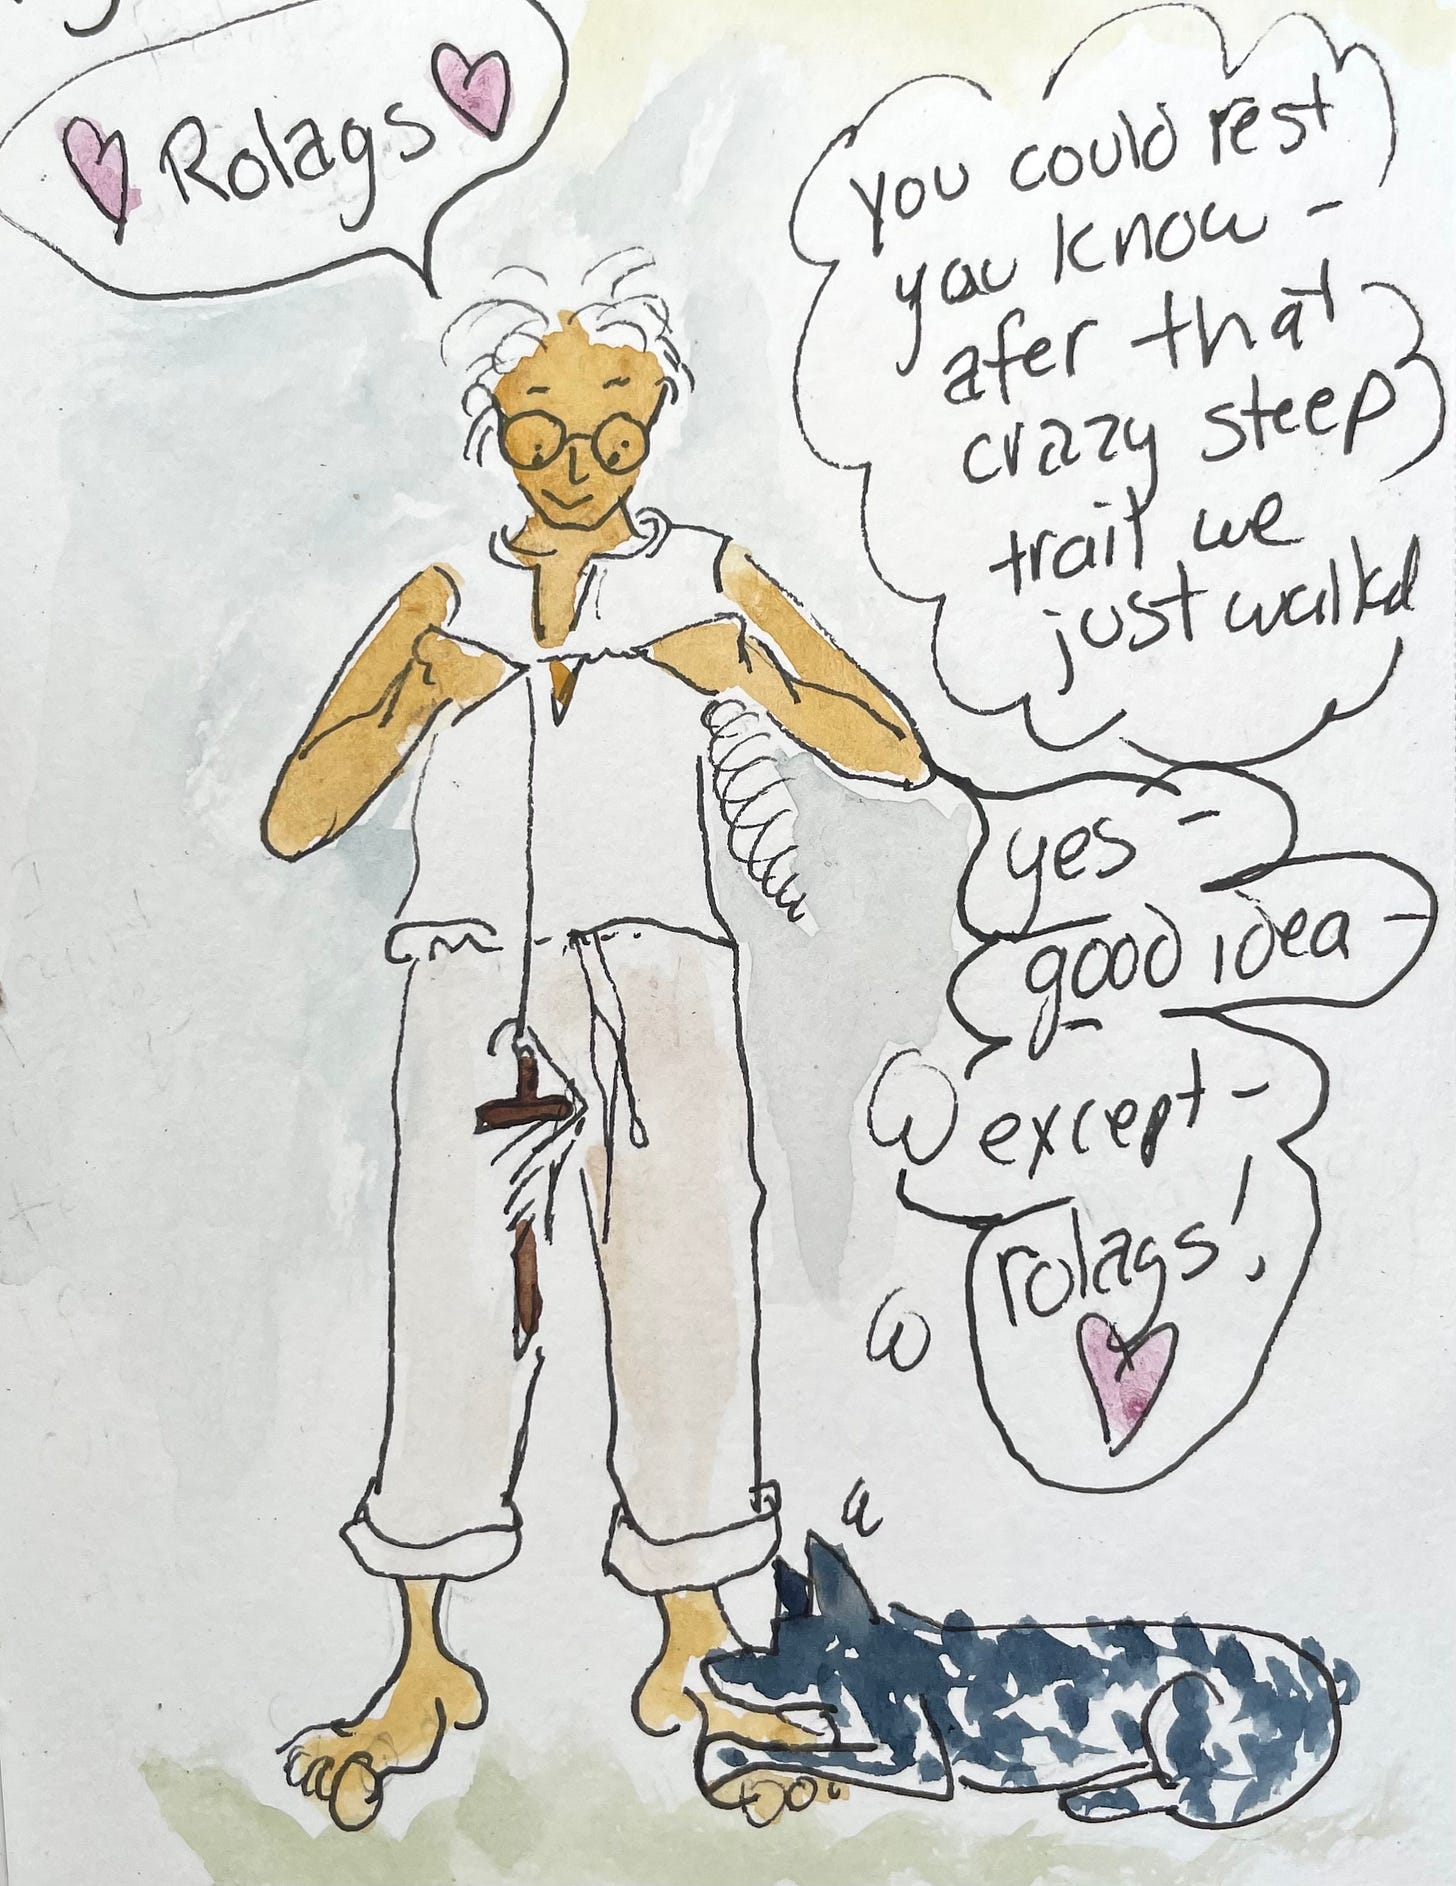 Rolags
You could rest
you know -
afer that
crazzy steep
trail we
just walkd
yes -
good idea -
except -
rolags!